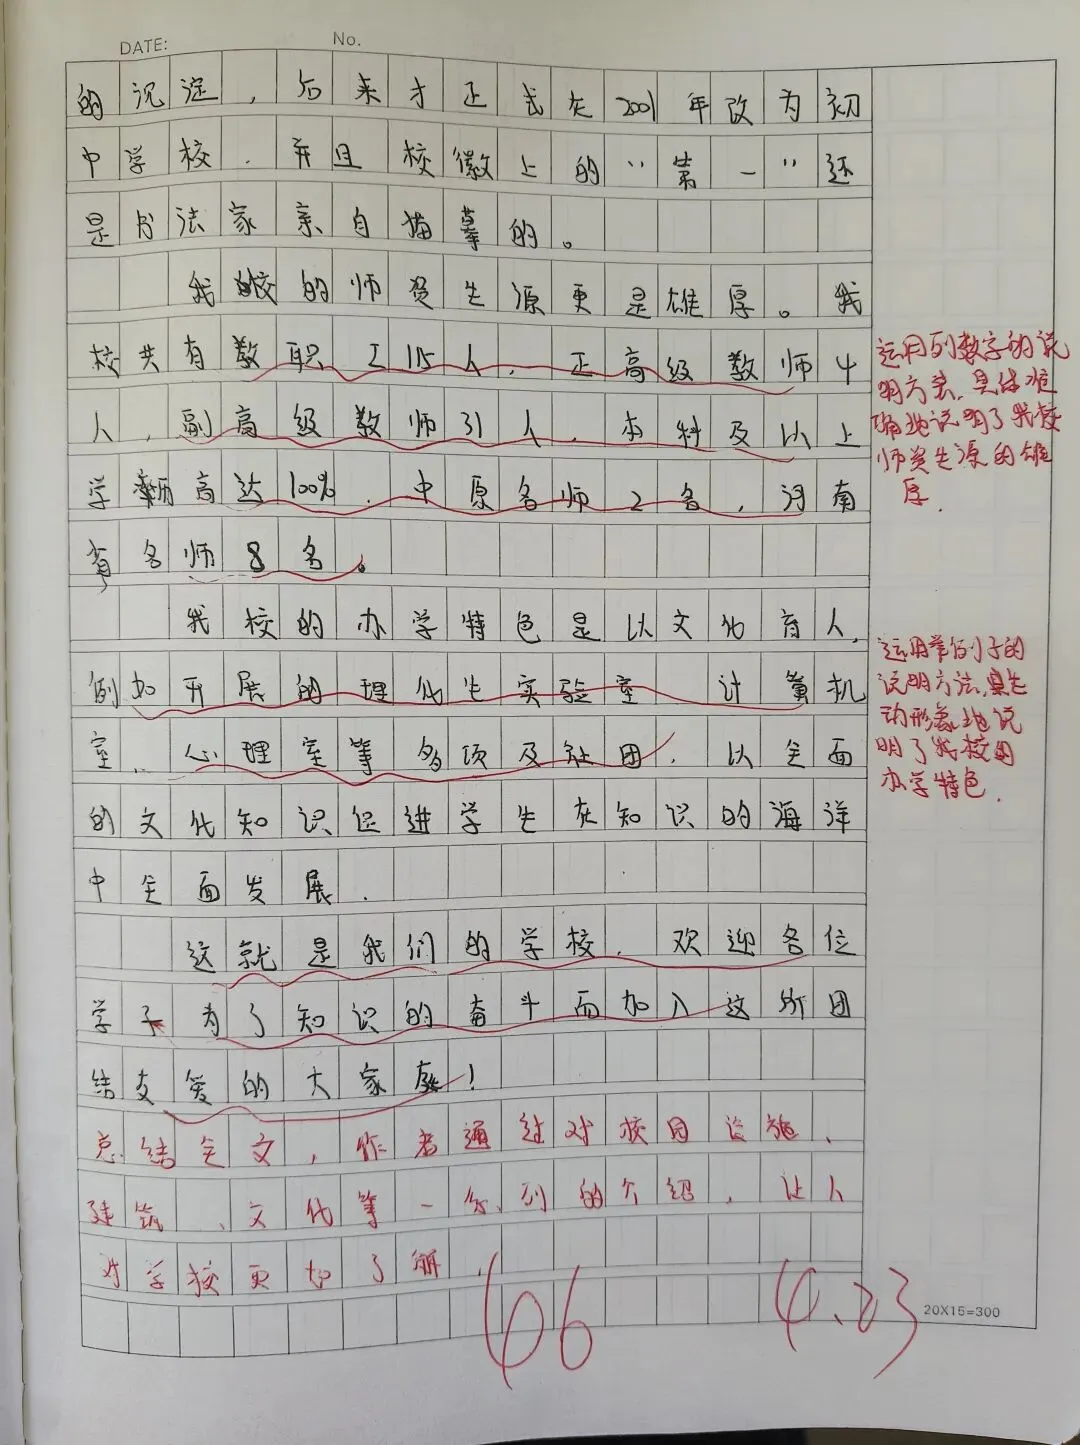 DATE:
No.
的沉淀,后来才正式在2001年改为初
中学校.并且校徽上的"第一"还
是书法家亲自描摹的。
我校的师资生源更是雄厚。我
校共有教职工115人,正高级教师4
人,副高级教师31人,本科及以上
学历高达100%,中原名师2名,河南
省名师8名。
我校的办学特色是以文化育人,
例如开展的理化生实验室、计算机
室、心理室等多项及社团,以全面
的文化知识促进学生在知识的海洋
中全面发展.
这就是我们的学校,欢迎各位
学子为了知识的奋斗而加入这所团
结友爱的大家庭!
总结全文,作者通过对校园设施、
建筑、文化等一系列的介绍,让人
对学校更加了解.
66
4.23
20X15=300
运用列数字的说
明方法,具体准
确地说明了我校
师资生源的雄
厚.
运用举例子的
说明方法,生
动形象地说
明了我校的
办学特色.